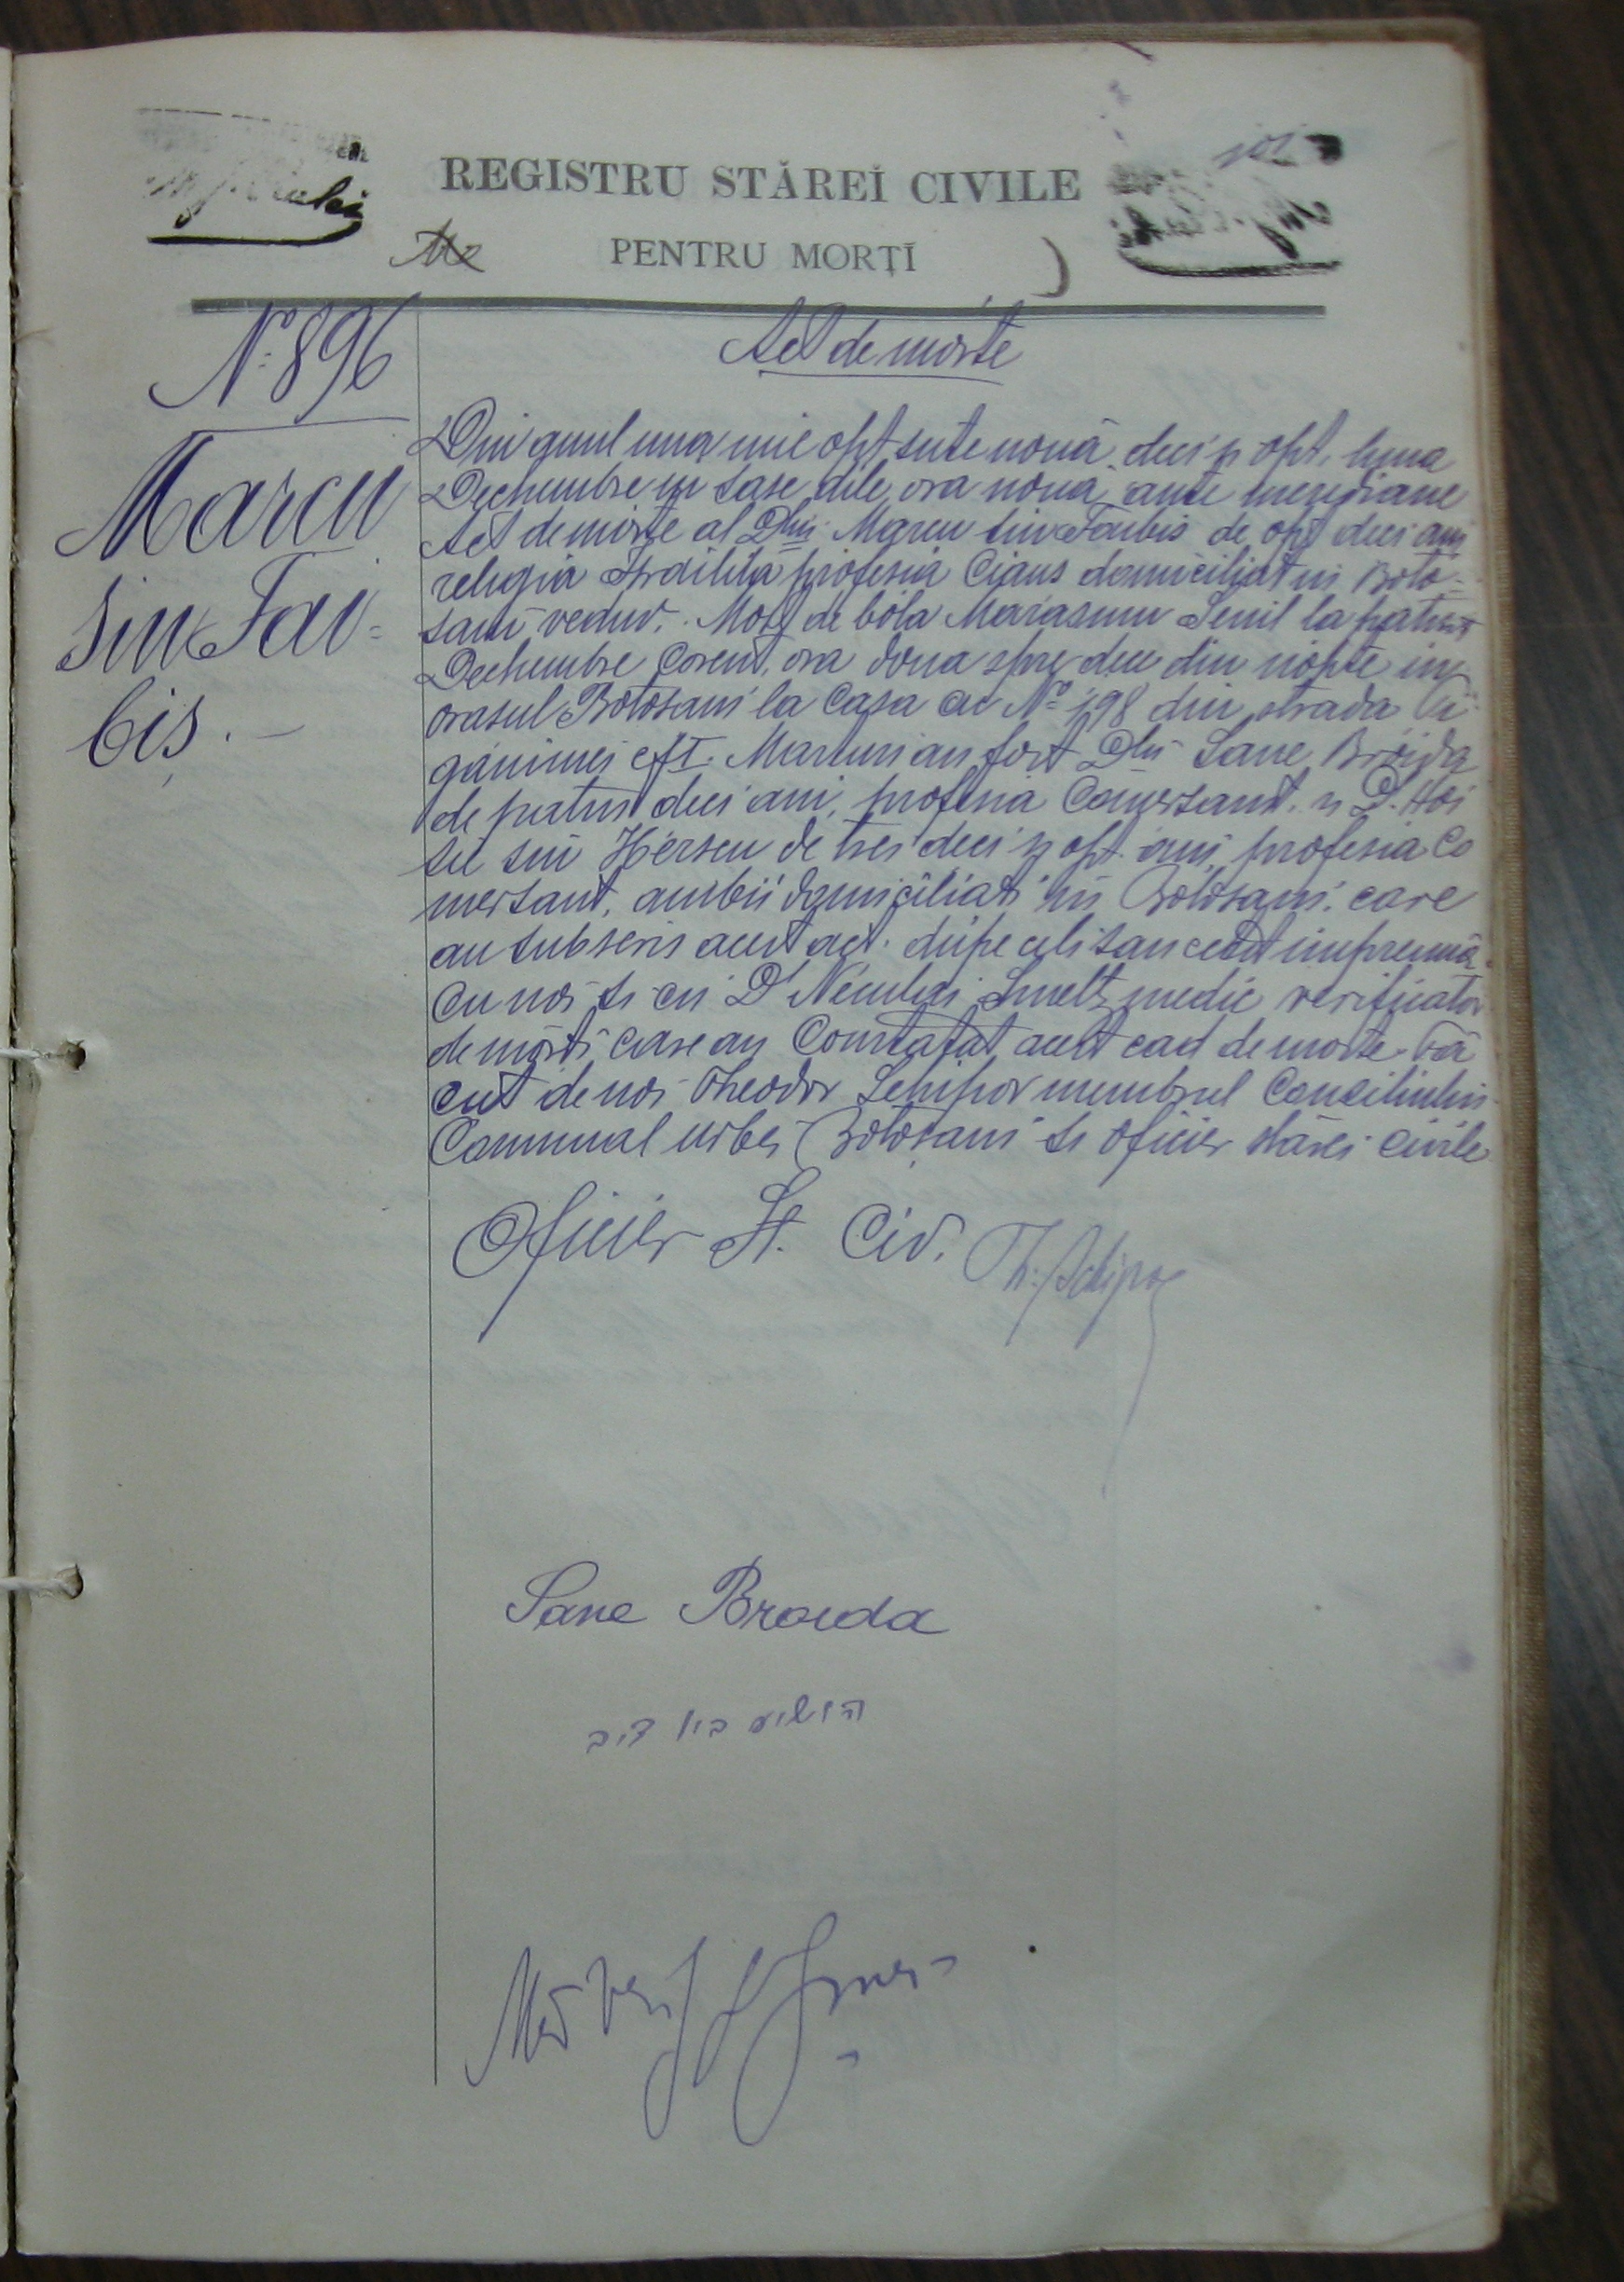 REGISTRU STĂREĬ CIVILE
PENTRU MORȚĬ
No 896
Marcu
sin Fai-
biș.—
Act de mórte
Din anul una mie opt sute nouă deci și opt, luna
Dechembre in sase dile ora noua ante meridiane
Act de mórte al Dlui Marcu sin Faibis de opt deci ani
religia Israilita profesia Ciaus domiciliat in Boto-
sani veduv. Mort de bóla Marasmu Senil la patru
Dechembre Corent, ora doua spre dece din nópte in
orasul Botosani la Casa cu No 198 din strada
Marturi au fost Dlu Sane Broida
de patru deci ani, profesia Comersant, si D. Hoi
su sin Herscu de trei deci și opt ani, profesia Co
mersant, ambii domiciliati in Botosani, care
au subscris acest act dupe ce li sau cetit impreună
cu noi si cu Dl Neculai Smeltz medic verificator
de morti care au Constatat acest cas de mórte. Fă
cut de noi Theodor Schipor membrul Consiliului
Comunal urbei Botosani si oficier stărei civile
Oficier St. Civ. Th. Schipor
Sane Broida
הושיע בין ליב